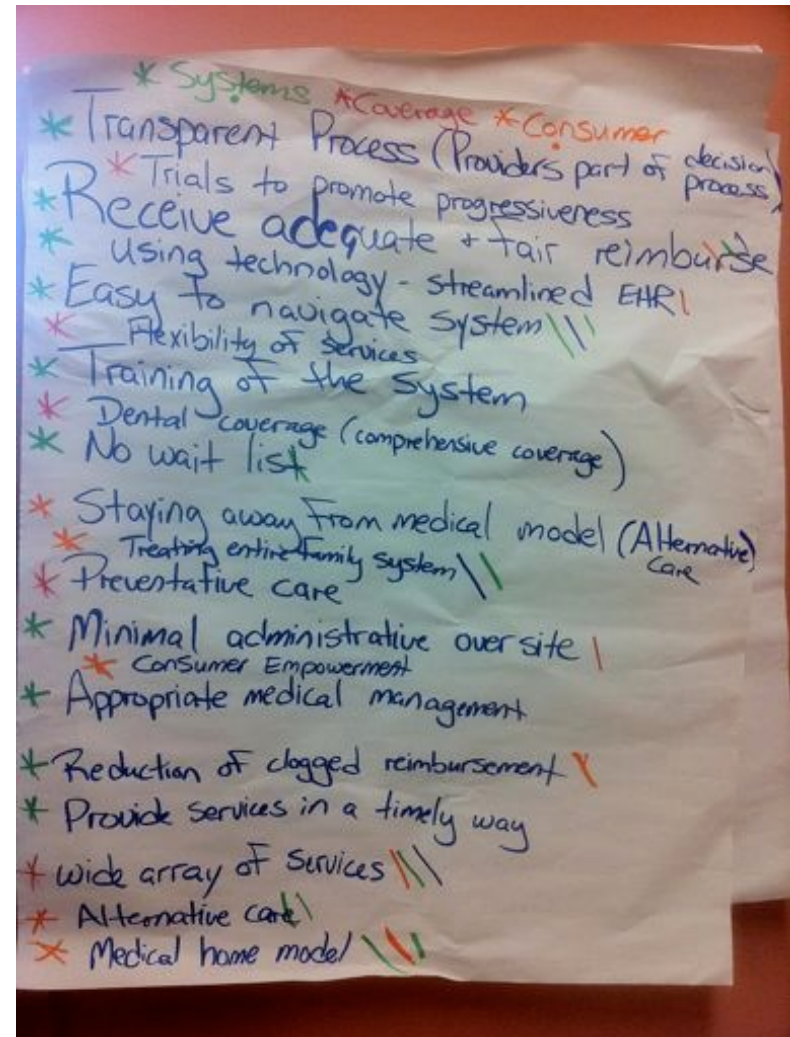 * Systems * Coverage * Consumer
* Transparent Process (Providers part of decision process)
* Trials to promote progressiveness
* Receive adequate + fair reimburse
* Using technology - streamlined EHR
* Easy to navigate system
* Flexibility of services
* Training of the system
* Dental coverage (comprehensive coverage)
* No wait list
* Staying away from medical model (Alternative) Care
* Treating entire family system
* Preventative care
* Minimal administrative over site
* Consumer Empowerment
* Appropriate medical management
* Reduction of clogged reimbursement
* Provide services in a timely way
* wide array of services
* Alternative care
* Medical home model